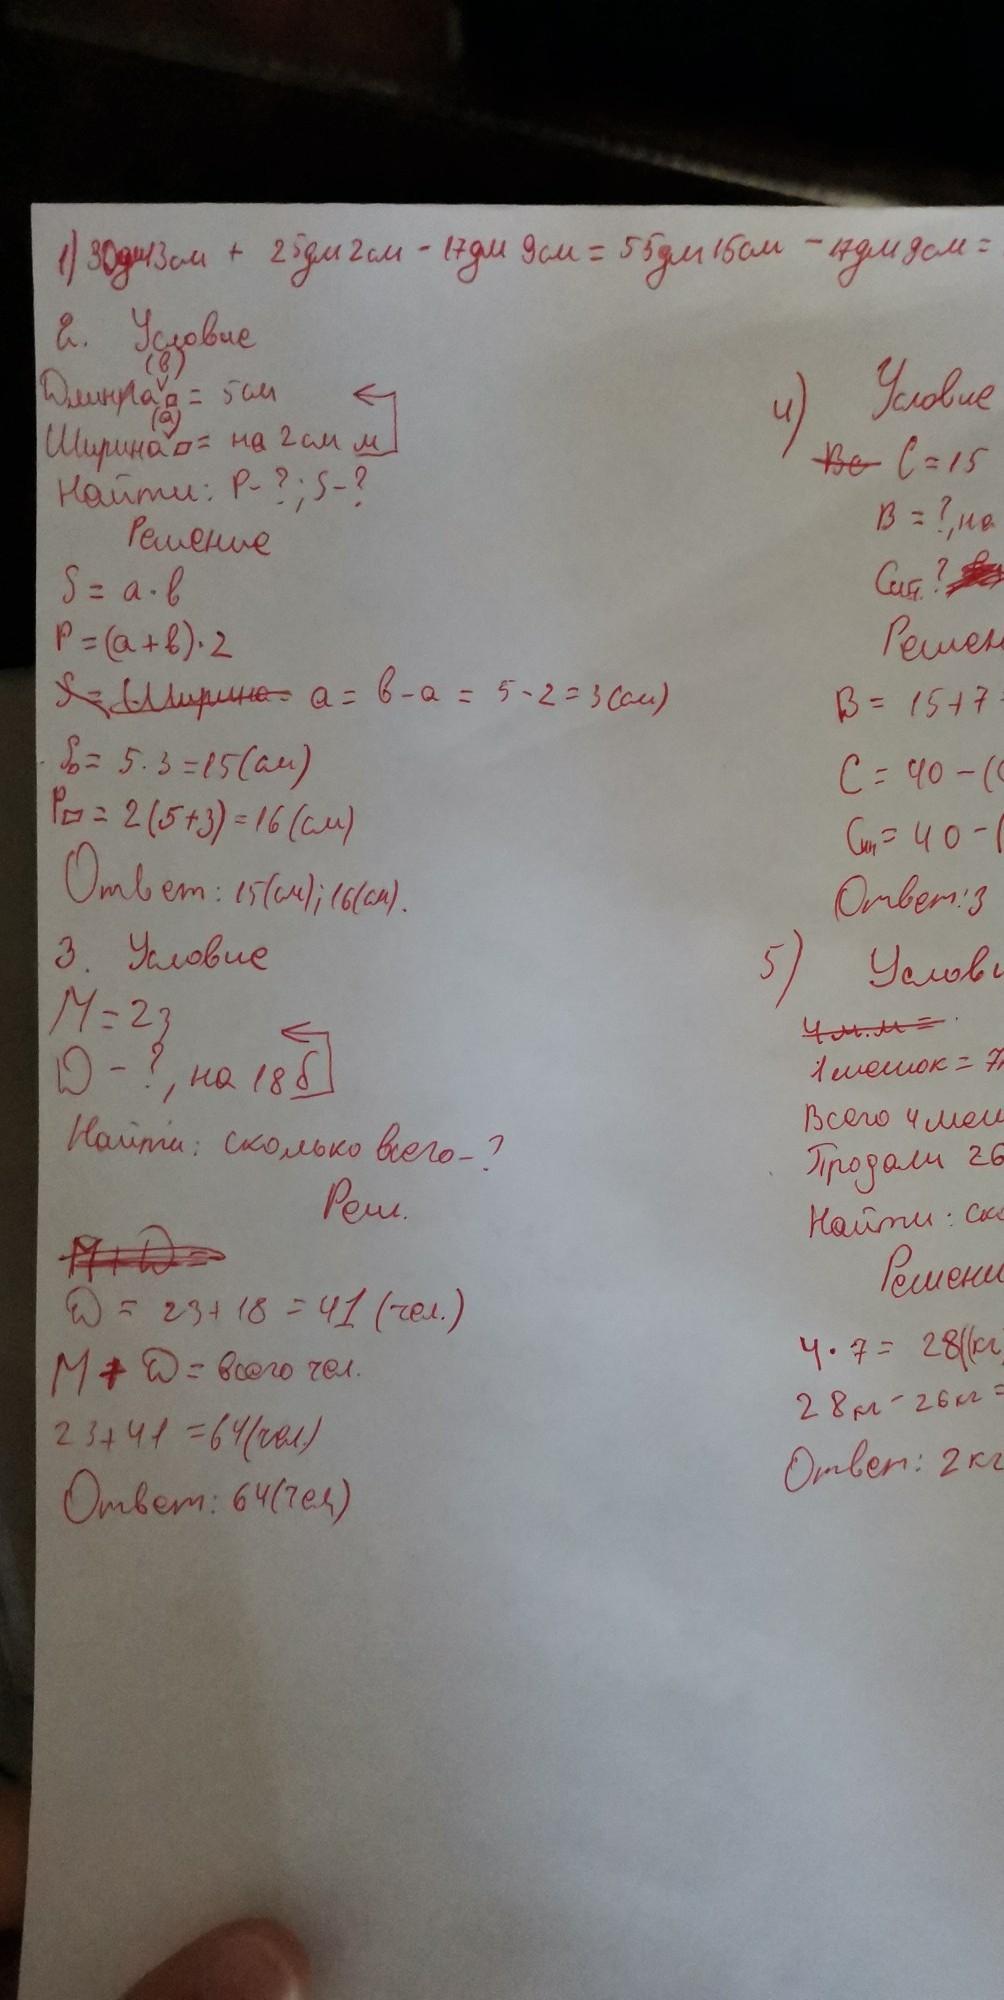 1) 30дм13см + 25дм2см - 17дм 9см = 55дм15см - 17дм9см =
2. Условие
(в)
Длинна = 5см
(а)
Ширина = на 2см м
Найти: P-?; S-?
Решение
S = а·в
P = (а+в)·2
S = Ширина = а = в-а = 5-2=3(см)
S = 5·3=15(см)
P = 2(5+3)=16(см)
Ответ: 15(см); 16(см).
3. Условие
М=23
D - ?, на 18 б
Найти: сколько всего-?
Реш.
М+D=
D = 23+18=41 (чел.)
М + D = всего чел.
23+41 =64(чел)
Ответ: 64(чел)
4) Условие
Вс С=15
В = ?, на
Сит.?
Решен
В = 15+7
С = 40-(
Сип = 40-(
Ответ: 3
5) Услови
4м.м=
1мешок = 7
Всего 4 меш
Продали 26
Найти: ско
Решени
4·7= 28(кг
28кг-26кг=
Ответ: 2кг